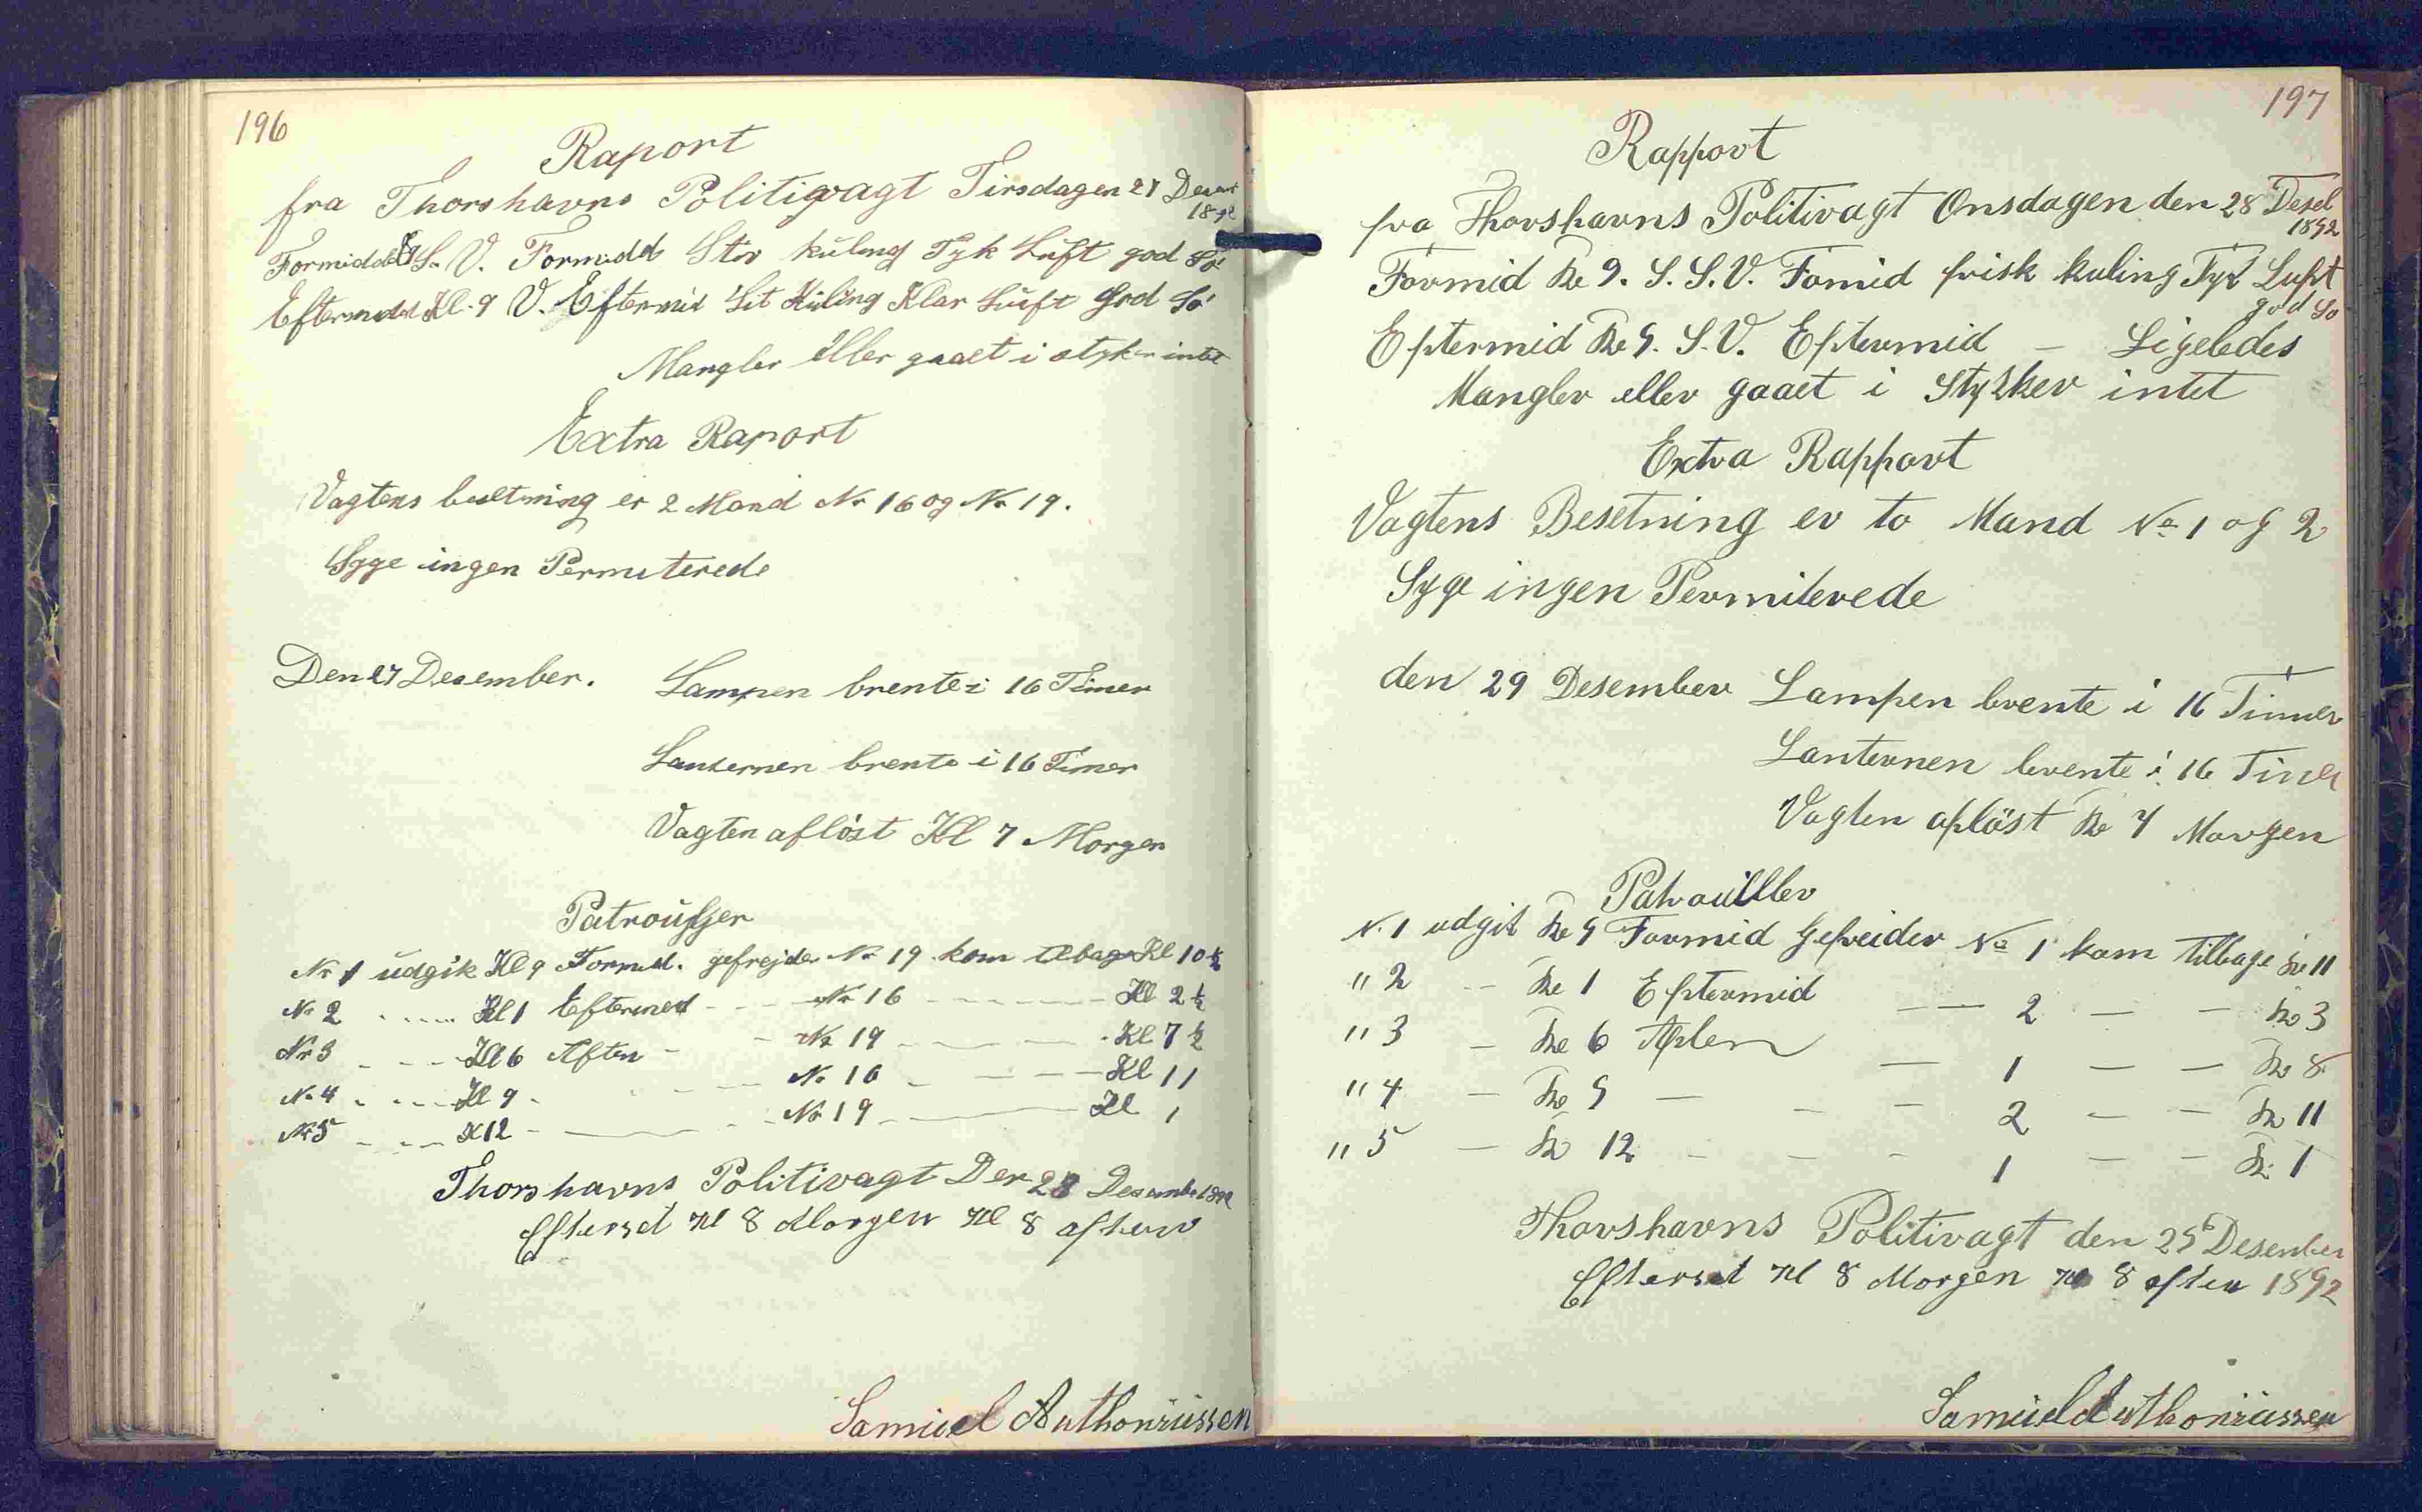 196
Raport
fra Thorshavns Politivagt Tirsdagen 27 Desem
1892
Formidd Kl 9 S. V. Formidd Stor kuling Tyk Luft god Sö
Eftermidd Kl. 9 V. Eftermid Lit Kuling Klar Luft God Sö
Mangler eller gaaet i styker intet
Extra Raport
Vagtens besetning er 2 Mand No 16 og No 19.
Syge ingen Permiterede
Den 27 Desember. Lampen brente i 16 Timer
Lanternen brente i 16 Timer
Vagten aflöst Kl 7 Morgen
Patrouller
No 1 udgik Kl 9 Formid. gefrejder No 19 kom tilbage Kl 10½
No 2 - - - Kl 1 Eftermed - - No 16 - - - - Kl 2½
No 3 - - - Kl 6 Aften - - No 19 - - - - Kl 7½
No 4 - - - Kl 9 - - - No 16 - - - - Kl 11
No 5 - - - Kl 12 - - - No 19 - - - - Kl 1
Thorshavns Politivagt Den 28 Desember 1892
Efterset Kl 8 Morgen Kl 8 aften
Samuel Anthoniussen
197
Rapport
fra Thorshavns Politivagt Onsdagen den 28 Desel
1892
Formid Kl 9. S. S. V. Fomid frisk kuling Tyk Luft
god So
Eftermid Kl 9. S. V. Eftermid — Ligeledes
Mangler eller gaaet i Stykker intet
Extra Rapport
Vagtens Besetning er to Mand No 1 og 2
Syge ingen Permiterede
den 29 Desember Lampen brente i 16 Timer
Lanternen brente i 16 Timer
Vagten aflöst Kl 7 Morgen
Patrouiller
N. 1 udgik Kl 9 Formid Gefreider No 1 kom tilbage Kl 11
" 2 - - Kl 1 Eftermid — — 2 — — Kl 3
" 3 — Kl 6 Aften — 1 — — Kl 8
" 4 — Kl 9 — — — 2 — — Kl 11
" 5 — Kl 12 — — — 1 — — Kl 1
Thorshavns Politivagt den 29 Desember
Efterset Kl 8 Morgen Kl 8 aften 1892
Samuel Anthoniussen